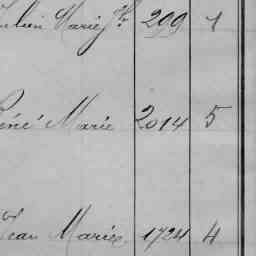 Julien Marie 209 1
René Marie 2014 5
Jean Marie 1724 4